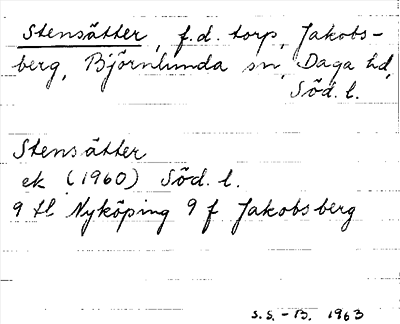 Stensätter, f.d. torp, Jakobs-
berg, Björnlunda sn, Daga hd,
Söd. l.
Stensätter
ek (1960) Söd. l.
9 tl Nyköping 9 f Jakobsberg
S.S. - B. 1963